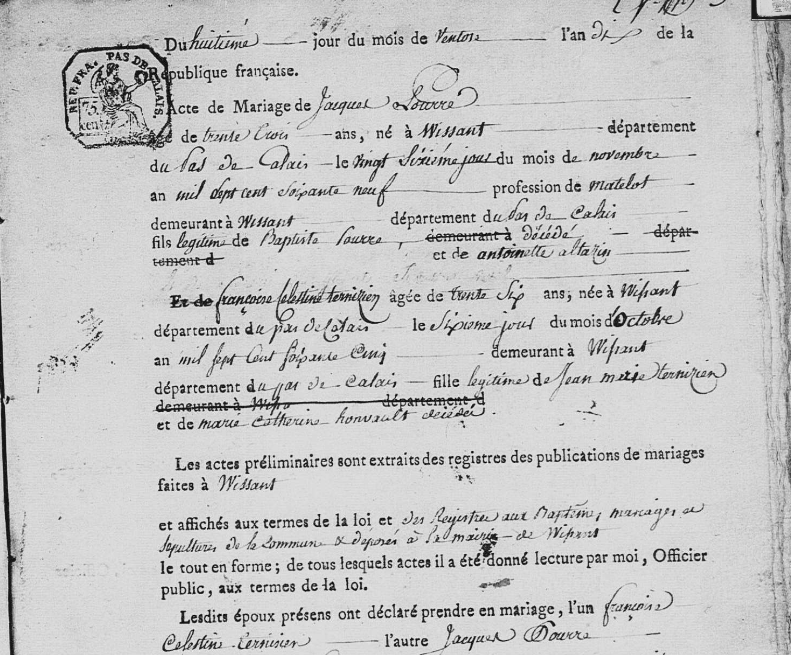 REP. FRA. PAS DE CALAIS
75 cent
Du huitième jour du mois de Ventose l'an dix de la
République française.
Acte de Mariage de Jacques Pourre
âgé de trente trois ans, né à Wissant département
du Pas de Calais le vingt sixième jour du mois de novembre
an mil sept cent soixante neuf profession de matelot
demeurant à Wissant département du pas de Calais
fils legitime de Baptiste Pourre, demeurant à décédé dépar-
tement d et de antoinette altazin
Et de françoise Celestine ternizien âgée de trente Six ans, née à Wissant
département du pas de Calais le Sixieme jour du mois d'Octobre
an mil sept Cent soixante Cinq demeurant à Wissant
département du pas de Calais fille legitime de Jean marie ternizien
demeurant à Wiss département d
et de marie Catherine honvault décédée.
Les actes préliminaires sont extraits des registres des publications de mariages
faites à Wissant
et affichés aux termes de la loi et des Registres aux Baptême, mariages et
sepultures de la Commune & déposés à la mairie de Wissant
le tout en forme; de tous lesquels actes il a été donné lecture par moi, Officier
public, aux termes de la loi.
Lesdits époux présens ont déclaré prendre en mariage, l'un françoise
Celestine ternisien l'autre Jacques Pourre